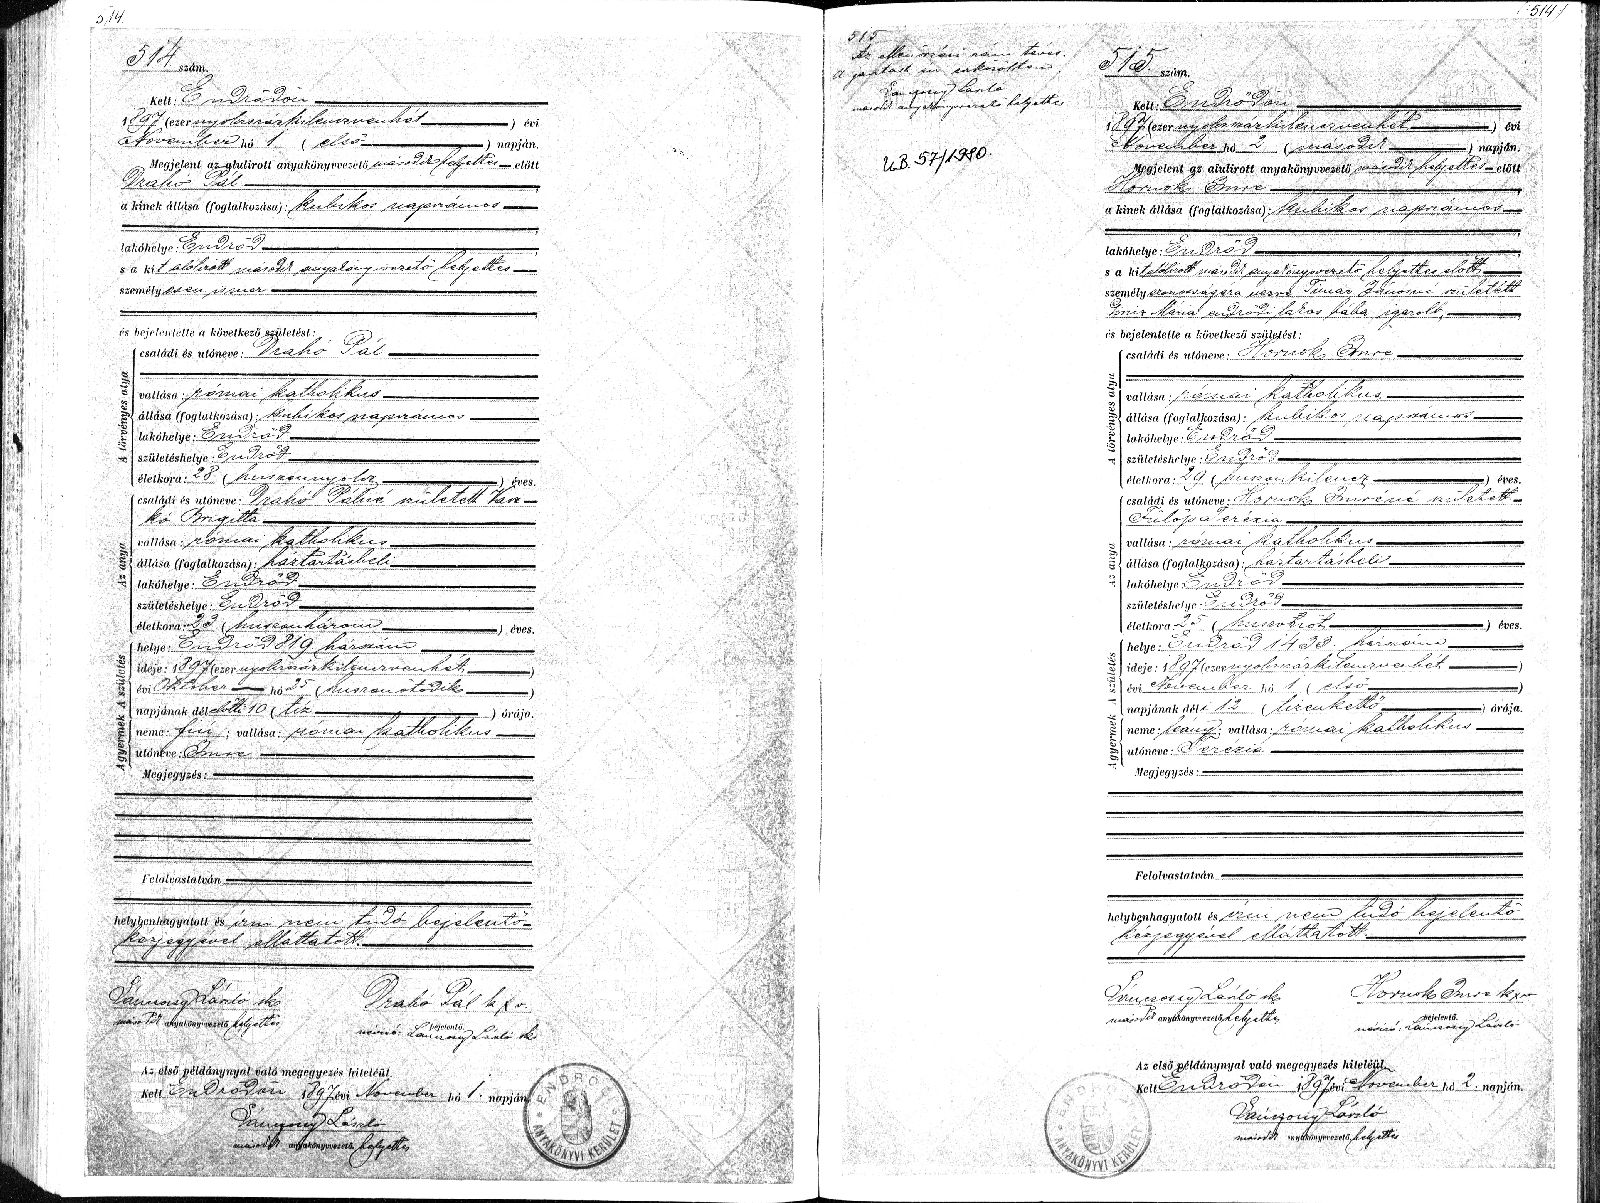 514.
514
szám.
Kelt: Endrődön
1897 (ezernyolcszázkilencvenhét) évi
November hó 1 (első) napján.
Megjelent az alulirott anyakönyvvezető második helyettes előtt
Drahó Pál
a kinek állása (foglalkozása): kubikos napszámos
lakóhelye: Endrőd
s a kit alólirott második anyakönyvvezető helyettes
személyesen ismer
és bejelentette a következő születést:
A törvényes atya
családi és utóneve: Drahó Pál
vallása: római katholikus
állása (foglalkozása): kubikos napszámos
lakóhelye: Endrőd
születéshelye: Endrőd
életkora: 28 (huszonnyolcz) éves.
Az anya
családi és utóneve: Drahó Pálné született
kó Brigitta
vallása: római katholikus
állása (foglalkozása): háztartásbeli
lakóhelye: Endrőd
születéshelye: Endrőd
életkora: 23 (huszonhárom) éves.
A születés
helye: Endrőd 819 házszám
ideje: 1897 (ezernyolcszázkilencvenhét)
évi Oktober hó 25 (huszonötödik)
napjának délelőtti 10 (tíz) órája.
A gyermek
neme: fiú; vallása: római katholikus
utóneve: Imre
Megjegyzés:
Felolvastatván
helybenhagyatott és irni nem tudó bejelentő
kézjegyével elláttatott.
Lánczosy László sk
második anyakönyvvezető helyettes
Drahó Pál k x v.
bejelentő.
névíró: Lánczosy László sk
Az első példánynyal való megegyezés hiteléül.
Kelt Endrődön 1897. évi November hó 1. napján.
Lánczosy László
második anyakönyvvezető helyettes
ENDRŐD
ANYAKÖNYVI KERÜLET
514/
515
László
második anyakönyvvezető helyettes
U.B. 57/1980.
515
szám.
Kelt: Endrődön
1897 (ezernyolcszázkilencvenhét) évi
November hó 2 (második) napján.
Megjelent az alulirott anyakönyvvezető második helyettes előtt
Hornok Imre
a kinek állása (foglalkozása): kubikos napszámos
lakóhelye: Endrőd
s a kit alólirott második anyakönyvvezető helyettes előtt
személy azonosságára nézve Timár Jánosné született
Mária endrődi lakos bába igazolt,
és bejelentette a következő születést:
A törvényes atya
családi és utóneve: Hornok Imre
vallása: római katholikus
állása (foglalkozása): kubikos napszámos
lakóhelye: Endrőd
születéshelye: Endrőd
életkora: 29 (huszonkilencz) éves.
Az anya
családi és utóneve: Hornok Imréné született
Fülöp Terézia
vallása: római katholikus
állása (foglalkozása): háztartásbeli
lakóhelye: Endrőd
születéshelye: Endrőd
életkora: 25 (huszonöt) éves.
A születés
helye: Endrőd 1438 házszám
ideje: 1897 (ezernyolcszázkilencvenhét)
évi November hó 1 (első)
napjának déli 12 (tizenkettő) órája.
A gyermek
neme: leány; vallása: római katholikus
utóneve: Terézia
Megjegyzés:
Felolvastatván
helybenhagyatott és irni nem tudó bejelentő
kézjegyével elláttatott.
Lánczosy László sk
második anyakönyvvezető helyettes
Hornok Imre k x v
bejelentő.
névíró: Lánczosy László
Az első példánynyal való megegyezés hiteléül.
Kelt Endrődön 1897. évi November hó 2. napján.
Lánczosy László
második anyakönyvvezető helyettes
ENDRŐD
ANYAKÖNYVI KERÜLET